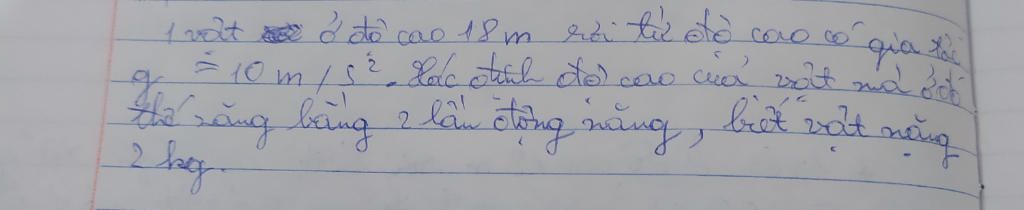 1 vật ở độ cao 18 m rơi từ độ cao có gia tốc
g = 10 m / s². Xác định độ cao của vật mà ở đó
thế năng bằng 2 lần động năng, biết vật nặng
2 kg.